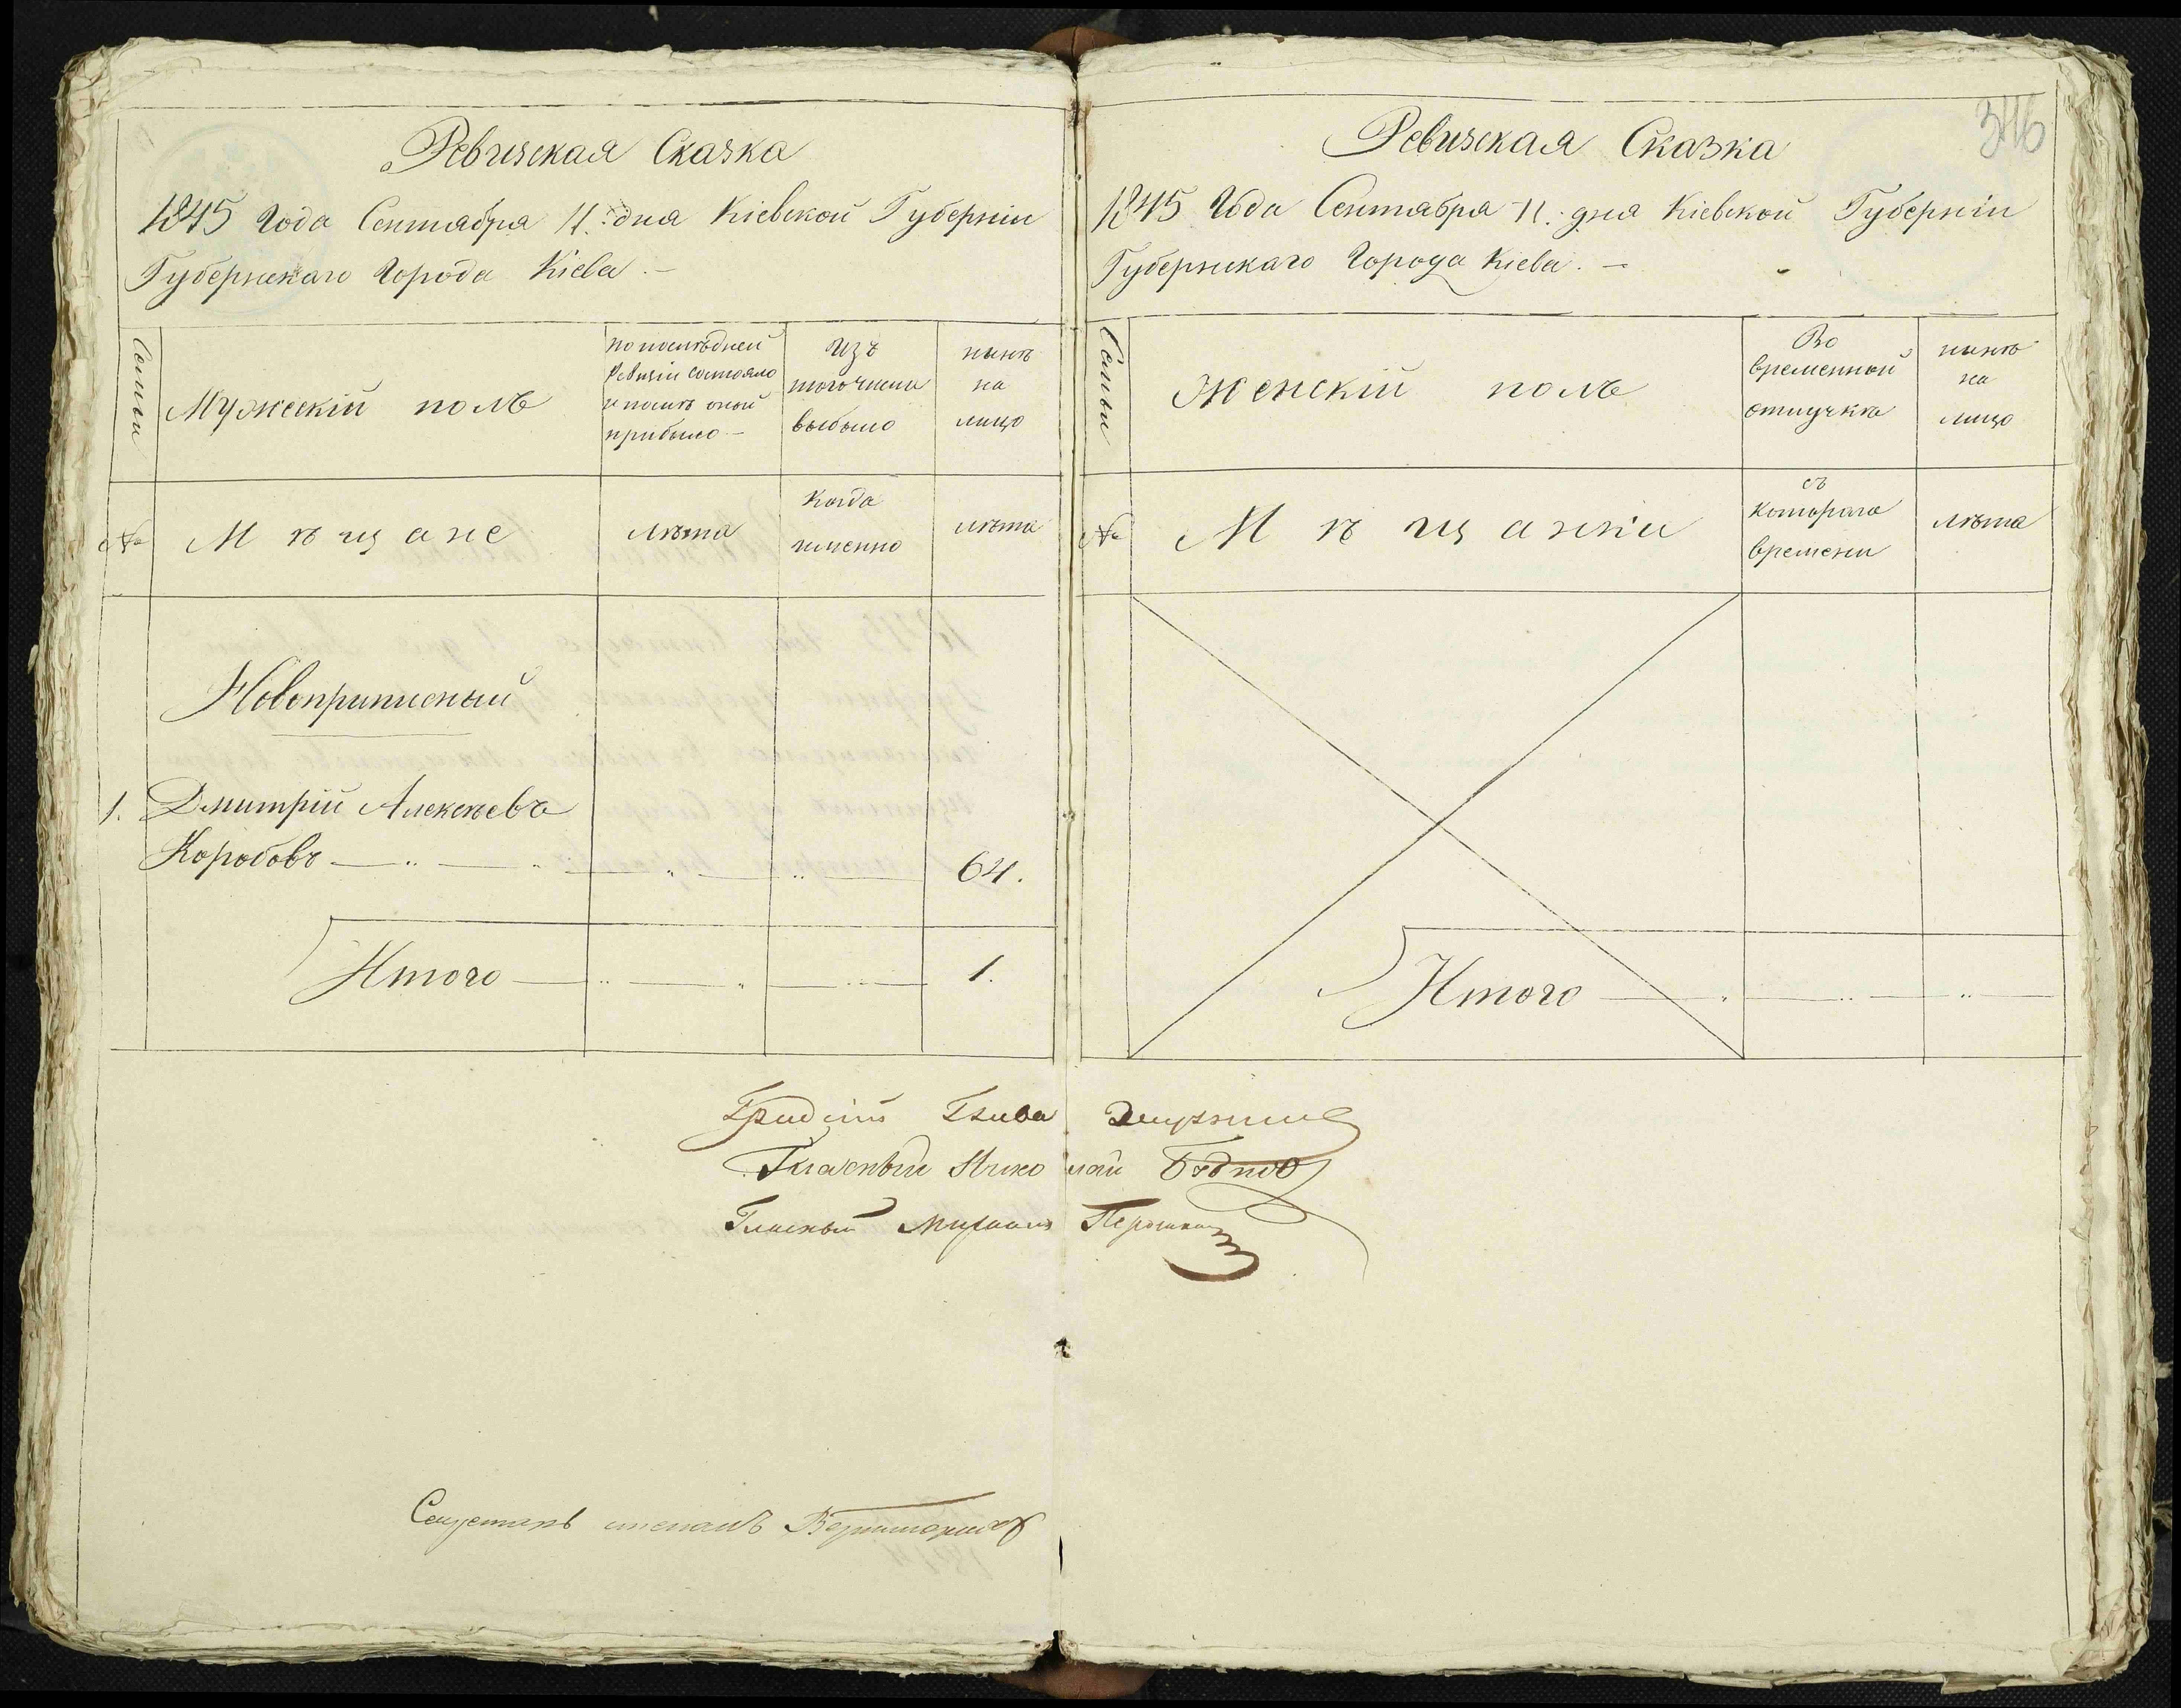 Ревизская Сказка
1845 Года Сентября 11. дня Кіевской Губерніи
Губернскаго Города Кіева. –
Семьи
Мужескій полъ
по послѣдней
Ревизіи состояло
и послѣ оной
прибыло –
изъ
того числа
выбыло
нынѣ
на
лицо
№
Мѣщане
лѣта
Когда
именно
лѣта
Новоприписный
1. Дмитрій Алексѣевъ
Коробовъ 64.
Итого 1.
346
Ревизская Сказка
1845 Года Сентября 11. дня Кіевской Губерніи
Губернскаго Города Кіева. –
Семьи
Женскій полъ
Во
временной
отлучкѣ
нынѣ
на
лицо
№
Мѣщанки
съ
котораго
времени
лѣта
Итого
Глава
Гласный Николай
Гласный Михаилъ